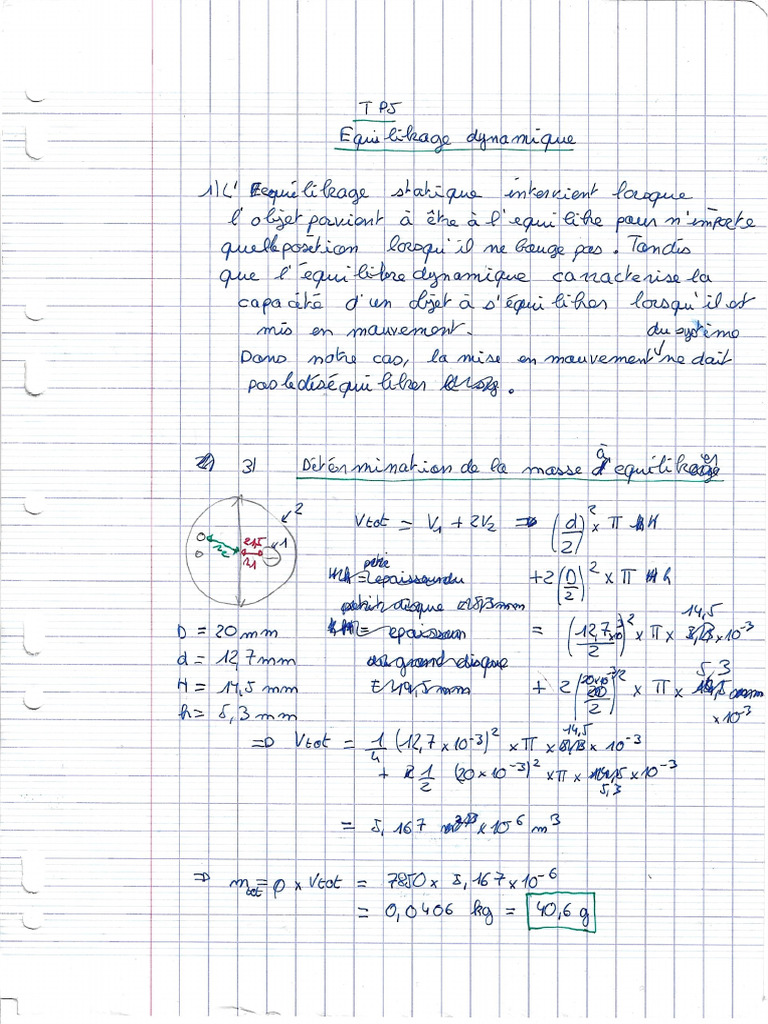 TP5
Equilibrage dynamique
1) L'Equilibrage statique intervient lorsque
l'objet parvient à être à l'equilibre pour n'importe
quelle position lorsqu'il ne bouge pas. Tandis
que l'équilibre dynamique carracterise la
capacité d'un objet à s'équilibrer lorsqu'il est
mis en mouvement. du système
Dans notre cas, la mise en mouvement ne doit
pas le déséquilibrer.
3) Détérmination de la masse à equilibrer
2
1
r2 r1
Vtot = V1 + 2V2 => (d/2)² × π H
+ 2(D/2)² × π h
epaisseur du petit disque 5,3mm
epaisseur du grand disque 14,5mm
D = 20 mm
d = 12,7mm
H = 14,5 mm
h = 5,3 mm
= (12,7×10⁻³/2)² × π × 14,5 ×10⁻³
+ 2(20×10⁻³/2)² × π × 5,3 ×10⁻³
=> Vtot = 1/4 (12,7×10⁻³)² × π × 14,5 × 10⁻³
+ 1/2 (20×10⁻³)² × π × 5,3 ×10⁻³
= 5,167 ×10⁻⁶ m³
=> mtot = ρ × Vtot = 7850 × 5,167×10⁻⁶
= 0,0406 kg = 40,6 g